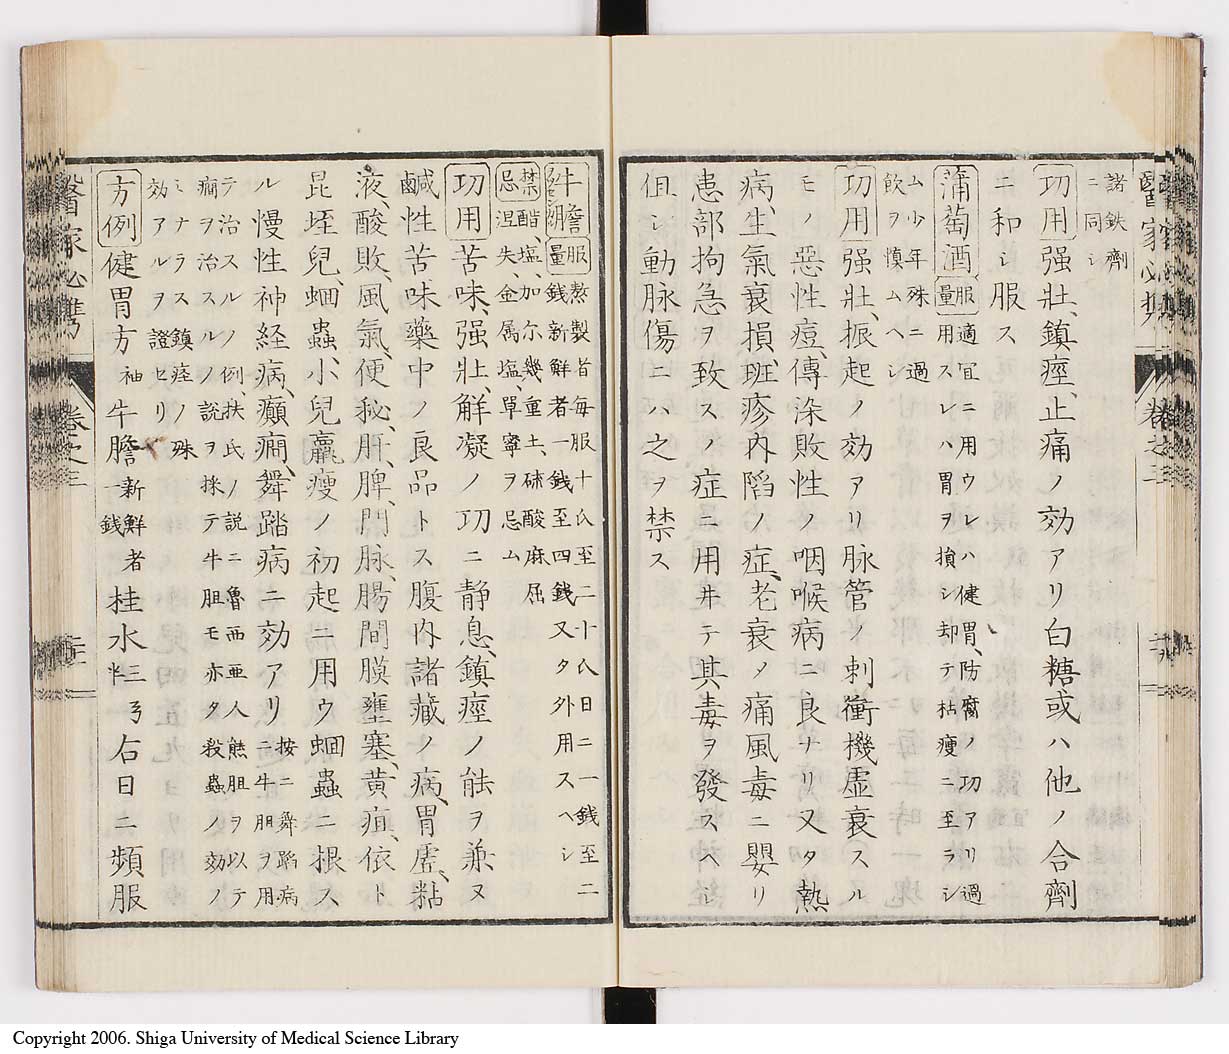 諸鉄劑
ニ同シ
功用強壯、鎮痙、止痛ノ効アリ白糖或ハ他ノ合劑
ニ和シ服ス
蒲萄酒
服量
適宜ニ用ウレハ健胃、防腐ノ功アリ過
用スレハ胃ヲ損シ却テ枯瘦ニ至ラシ
ム少年殊ニ過
飲ヲ慎ムヘシ
功用強壯、振起ノ効アリ脉管ノ刺衝機虚衰スル
モノ惡性痘、傳染敗性ノ咽喉病ニ良ナリ又タ熱
病、生氣衰損、班疹内陷ノ症、老衰ノ痛風毒ニ嬰リ
患部拘急ヲ致スノ症ニ用井テ其毒ヲ發スヘシ
但シ動脉傷ニハ之ヲ禁ス
醫家必携
卷之三
牛膽
服量
熬製者毎服十氏至二十氏日ニ一錢至二
錢新鮮者一錢至四錢又タ外用スヘシ
禁忌
醋、塩、加尔幾、重土、硫酸麻屈
涅失、金属塩、單寧ヲ忌ム
功用苦味、强壯、觧凝ノ功ニ静息、鎮痙ノ能ヲ兼ヌ
鹹性苦味藥中ノ良品トス腹内諸藏ノ病、胃虚、粘
液、酸敗、風氣、便秘、肝、脾、門脉、腸間膜壅塞、黄疸、依ト
昆垤兒、蛔蟲、小兒羸瘦ノ初起ニ用ウ蛔蟲ニ根ス
ル慢性神経病、癲癇、舞踏病ニ効アリ
按ニ舞蹈病
ニ牛胆ヲ用
テ治スルノ例、扶氏ノ説ニ魯西亜人熊胆ヲ以テ
癇ヲ治スルノ説ヲ採テ牛胆モ亦タ殺蟲ノ効ノ
ミナラス鎮痙ノ殊
効アルヲ證セリ
方例健胃方
袖
牛膽
新鮮者
一錢
桂水
三弓
半
右日ニ頻服
醫家必携
卷之三
Copyright 2006. Shiga University of Medical Science Library